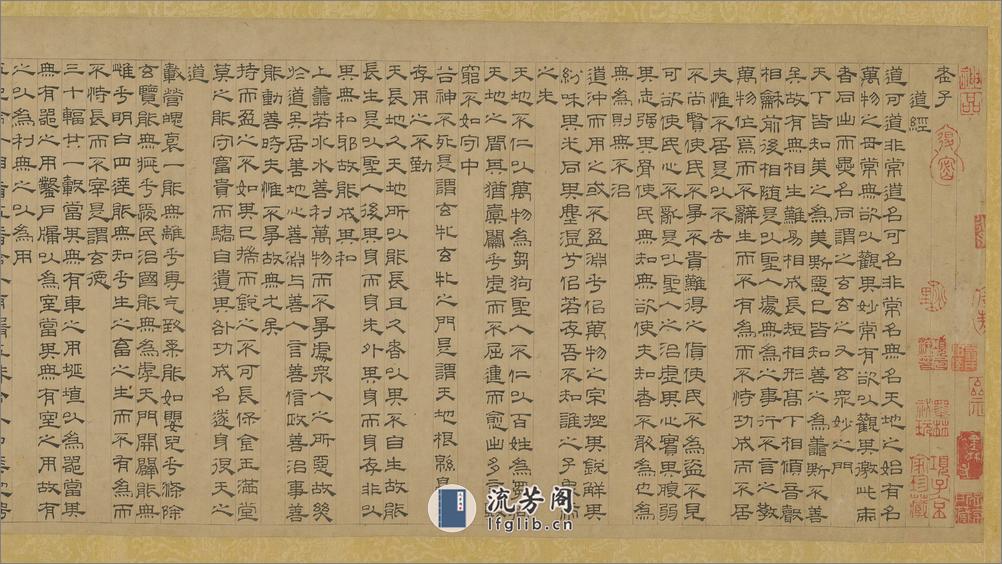 老子
道經
道可道非常道名可名非常名無名天地之始有名
萬物之母常無欲以觀其妙常有欲以觀其徼此兩
者同出而異名同謂之玄玄之又玄眾妙之門
天下皆知美之為美斯惡已皆知善之為善斯不善
矣故有無相生難易相成長短相形髙下相傾音聲
相龢前後相随是以聖人處無為之事行不言之教
萬物作焉而不辭生而不有為而不恃功成而不居
夫惟不居是以不去
不尚賢使民不爭不貴難得之貨使民不為盗不見
可欲使心不亂是以聖人之治虛其心實其腹弱
其志强其骨使民無知無欲使夫知者不敢為也
無為則無不治
道沖而用之或不盈淵乎似萬物之宗挫其銳解其
紛同其塵湛兮似若存吾不知誰之子
之先
天地不仁以萬物為芻狗聖人不仁以百姓為
天地之間其猶橐籥乎虛而不屈動而愈出多
窮不如守中
谷神不死是謂玄牝玄牝之門是謂天地根綿
存用之不勤
天長地久天地所以能長且久者以其不自生故能
長生是以聖人後其身而身先外其身而身存非以
其無私邪故能成其私
上善若水水善利萬物而不爭處眾人之所惡故幾
於道矣居善地心善淵與善人言善信政善治事善
能動善時夫惟不爭故無尤矣
持而盈之不如其已揣而銳之不可長保金玉滿堂
莫之能守富貴而驕自遺其咎功成名遂身退天之
道
載營魄抱一能無離乎專氣致柔能如嬰兒乎滌除
玄覽能無疵乎愛民治國能無為乎天門開闔能無
雌乎明白四達能無知乎生之畜之生而不有為而
不恃長而不宰是謂玄德
三十輻共一轂當其無有車之用埏埴以為器當其
無有器之用鑿戶牖以為室當其無有室之用故有
之以為利無之以為用
流芳阁
lfglib.cn